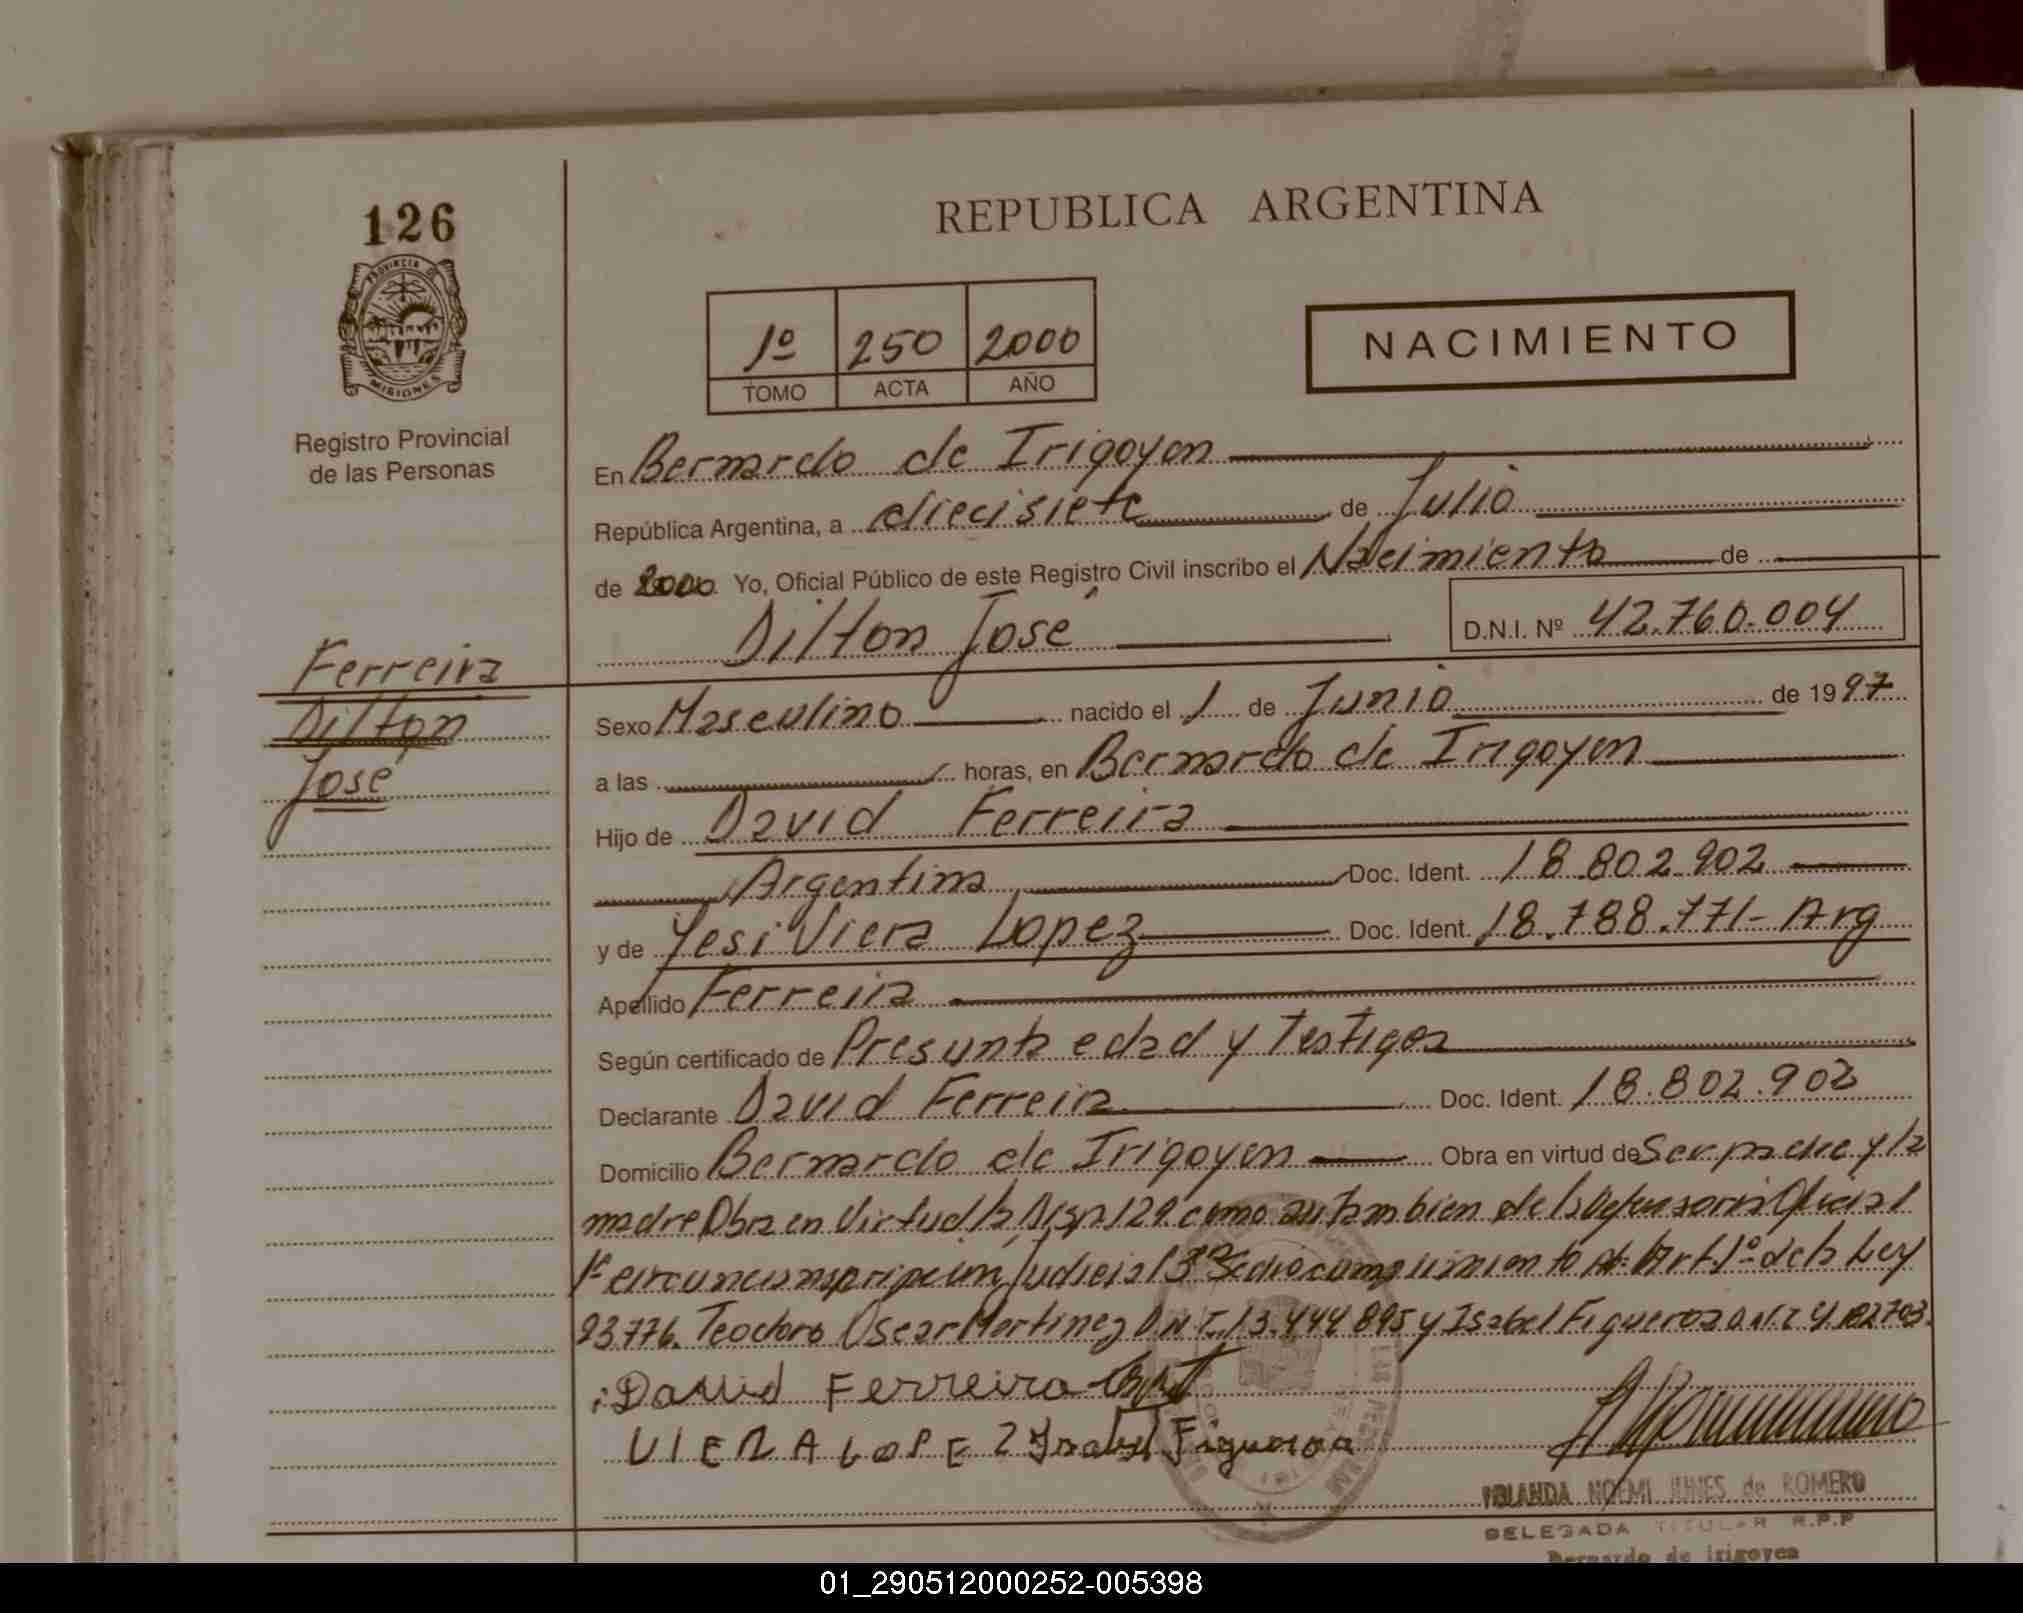 126
PROVINCIA DE
MISIONES
Registro Provincial
de las Personas
Ferreira
Dilton
José
REPUBLICA ARGENTINA
1º 250 2000
TOMO ACTA AÑO
NACIMIENTO
En Bernardo de Irigoyen
República Argentina, a diecisiete de Julio
de 2000 Yo, Oficial Público de este Registro Civil inscribo el Nacimiento de
Dilton José D.N.I. Nº 42.760.004
Sexo Masculino nacido el 1 de Junio de 1997
a las horas, en Bernardo de Irigoyen
Hijo de David Ferreira
Argentina Doc. Ident. 18.802.902
y de Yesi Viera Lopez Doc. Ident. 18.788.771- Arg
Apellido Ferreira
Según certificado de Presunta edad y Testigos
Declarante David Ferreira Doc. Ident. 18.802.902
Domicilio Bernardo de Irigoyen Obra en virtud de Ser padre y la
madre Obra en virtud la Disp. 129 como también de la Defensoria Oficial
1º Judicial cumplimiento Art. 1º de la Ley
23.776. Teodoro Oscar Martinez D.N.I. 13.444.895 y Isabel Figueroa D.N.I. 4.182.703.
David Ferreira
VIERA LOPEZ Isabel Figueroa
YOLANDA NOEMI de ROMERO
DELEGADA TITULAR R.P.P
Bernardo de Irigoyen
01_290512000252-005398